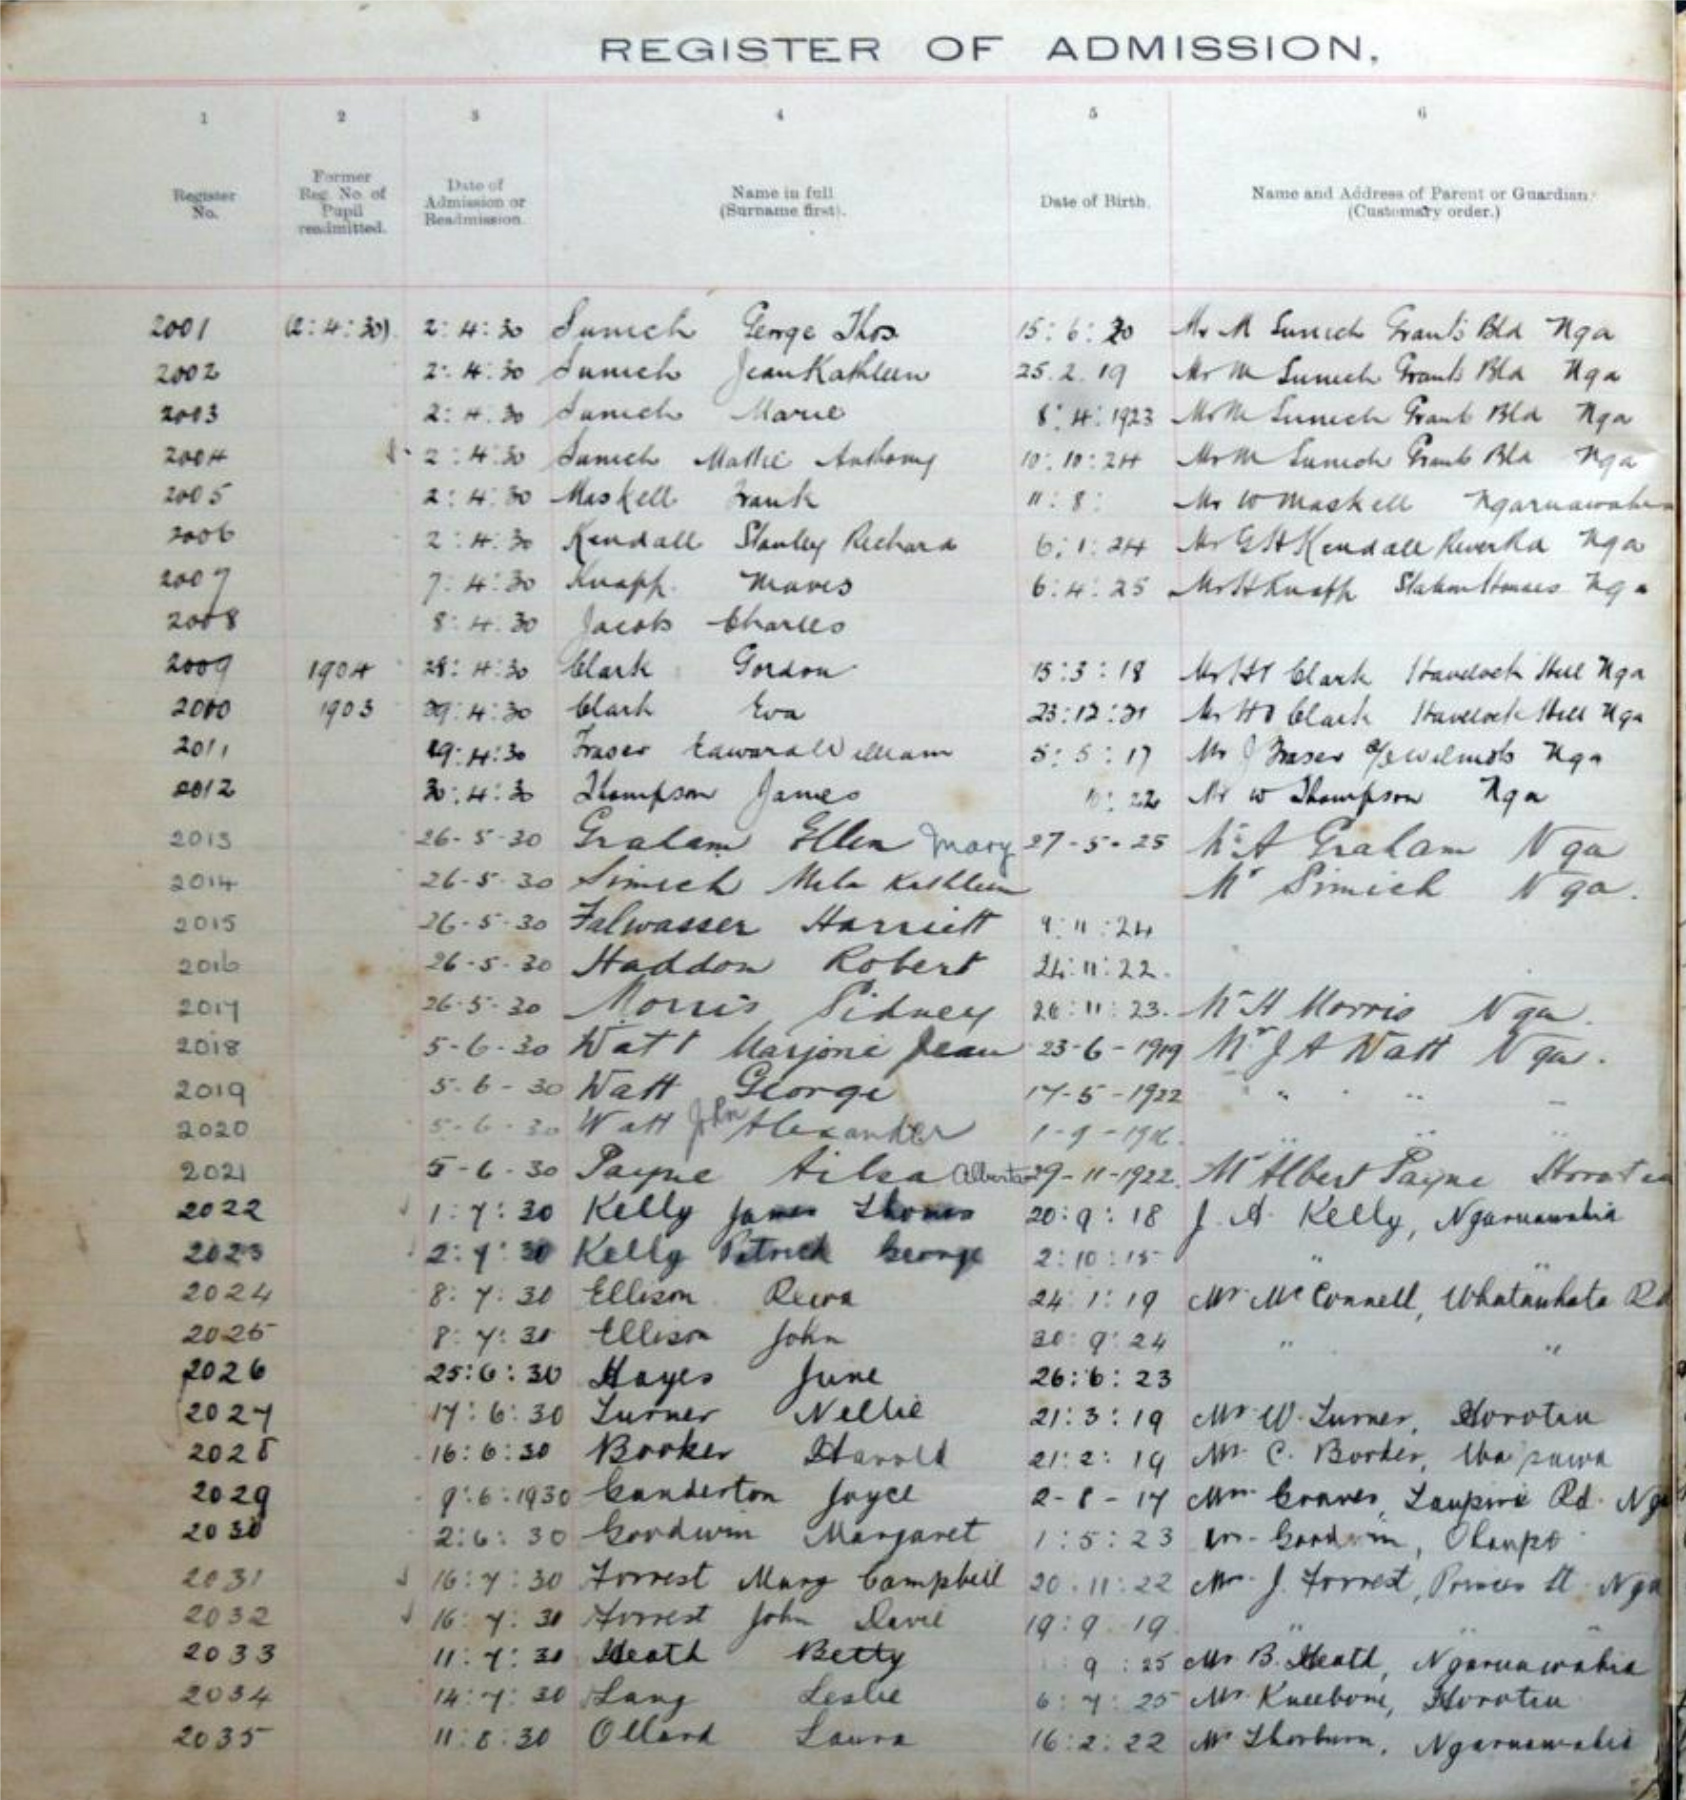 REGISTER OF ADMISSION.
1 2 3 4 5 6
Register No. Former Reg. No. of Pupil readmitted. Date of Admission or Readmission. Name in full (Surname first). Date of Birth. Name and Address of Parent or Guardian. (Customary order.)
2001 (2:4:30) 2:4:30 Sunich George Thos 15:6:20 Mr M Sunich Grants Bld Nga
2002 2:4:30 Sunich Jean Kathleen 25.2.19 Mr M Sunich Grants Bld Nga
2003 2:4:30 Sunich Marie 8:4:1923 Mr M Sunich Grant Bld Nga
2004 2:4:30 Sunich Anthony 10:10:24 Mr M Sunich Grants Bld Nga
2005 2:4:30 Maskell Frank 11:8: Mr W Maskell Ngaruawahia
2006 2:4:30 Kendall Stanley Richard 6:1:24 Mr G H Kendall River Rd Nga
2007 7:4:30 Knapp Maves 6:4:25 Mr H Knapp Station Houses Nga
2008 8:4:30 Jacobs Charles
2009 1904 28:4:30 Clark Gordon 15:3:18 Mr Clark Havelock Hill Nga
2010 1903 29:4:30 Clark Eva 23:12:21 Mr Clark Havelock Hill Nga
2011 29:4:30 Fraser Edward William 5:5:17 Mr J Fraser Nga
2012 30:4:30 Thompson James 22 Mr W Thompson Nga
2013 26-5-30 Graham Ellen Mary 27-5-25 Mr A Graham Nga
2014 26-5-30 Simich Kathleen Mr Simich Nga.
2015 26-5-30 Falwasser Harriett 9:11:24
2016 26-5-30 Haddon Robert 24:11:22.
2017 26-5-30 Morris Sidney 26:11:23. Mr H Morris Nga.
2018 5-6-30 Watt Marjorie Jean 23-6-1919 Mr J A Watt Nga.
2019 5.6-30 Watt George 17-5-1922 " " " "
2020 5-6-30 Watt John Alexander " " "
2021 5-6-30 Payne Ailsa Alberta 29-11-1922. Mr Albert Payne Horotiu
2022 1:7:30 Kelly James Thomas 20:9:18 J. A. Kelly, Ngaruawahia
2023 2:7:30 Kelly Patrick George 2:10:15 " "
2024 8:7:30 Ellison Rewa 24:1:19 Mr McConnell, Whatawhata Rd
2025 8:7:30 Ellison John 30:9:24 " "
2026 25:6:30 Hayes June 26:6:23
2027 17:6:30 Turner Nellie 21:3:19 Mr W. Turner, Horotiu
2028 16:6:30 Booker Harold 21:2:19 Mr C. Booker, Waipawa
2029 9:6:1930 Canderton Joyce 2-8-17 Graves, Taupiri Rd. Nga
2030 2:6:30 Goodwin Margaret 1:5:23 Goodwin, Ohaupo
2031 16:7:30 Forrest Mary Campbell 20.11:22 Mr J. Forrest, Princes St. Nga
2032 16:7:30 Forrest John 19:9.19. " " "
2033 11:7:30 Heath Betty 9:25 Mr B. Heath, Ngaruawahia
2034 14:7:30 Lang Leslie 6:7:25 Mr Kneebone, Horotiu
2035 11:8:30 Ollard Laura 16:2:22 Mr Thorburn, Ngaruawahia